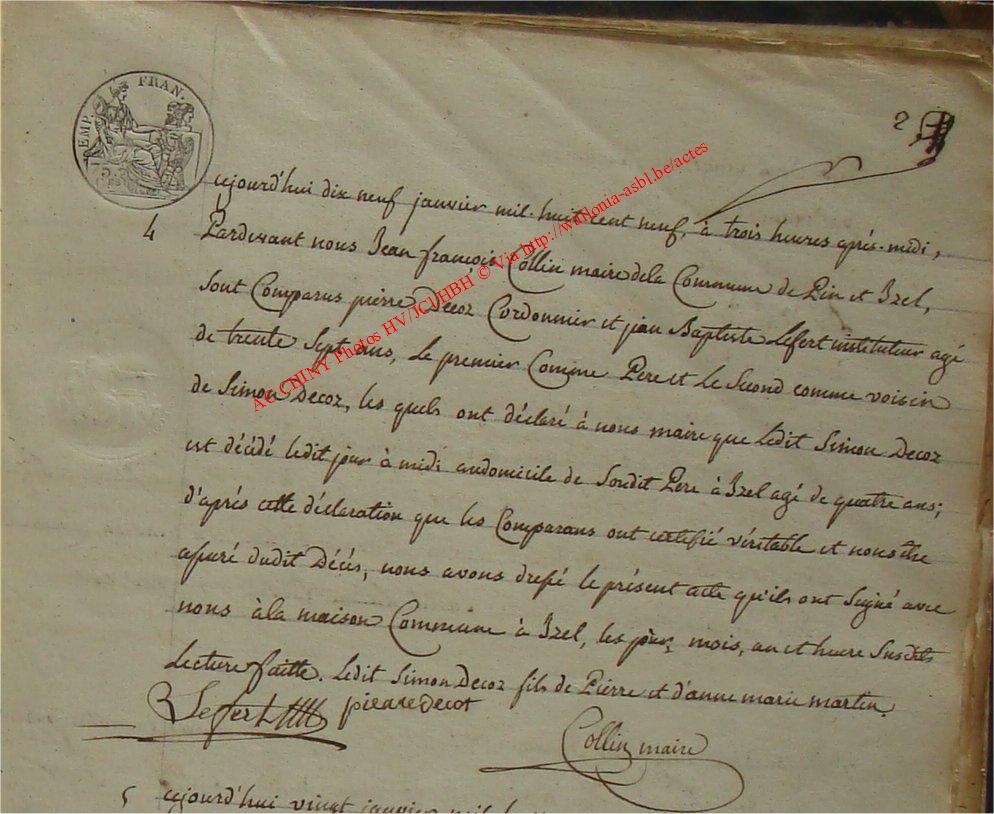 EMP. FRAN.
75. C.
2
4
aujourd'hui dix neuf janvier mil-huit cent neuf, à trois heures après-midi,
Pardevant nous Jean françois Collin maire dela Commune de Pin et Izel,
sont Comparus pierre Decoz Cordonnier et jean Baptiste Lefert instituteur agé
de trente Sept ans, Le premier Comme Pere et Le Second comme voisin
de Simon Decoz, les quels ont déclaré à nous maire que Ledit Simon Decoz
est décédé ledit jour à midi audomicile de Sondit Pere à Izel agé de quatre ans;
d'après cette déclaration que les Comparans ont certifié véritable et nous être
assuré dudit Décés, nous avons dressé le présent acte qu'ils ont Signé avec
nous à la maison Commune à Izel, les jour, mois, an et heure Susdits
Lecture faitte. Ledit Simon Decoz fils de Pierre et d'anne marie martin.
Lefert pierre Decot
Collin maire
5 aujourd'hui vingt janvier mil
AC CHINY Photos HV/JCJ/HBH © Via http://wallonia-asbl.be/actes